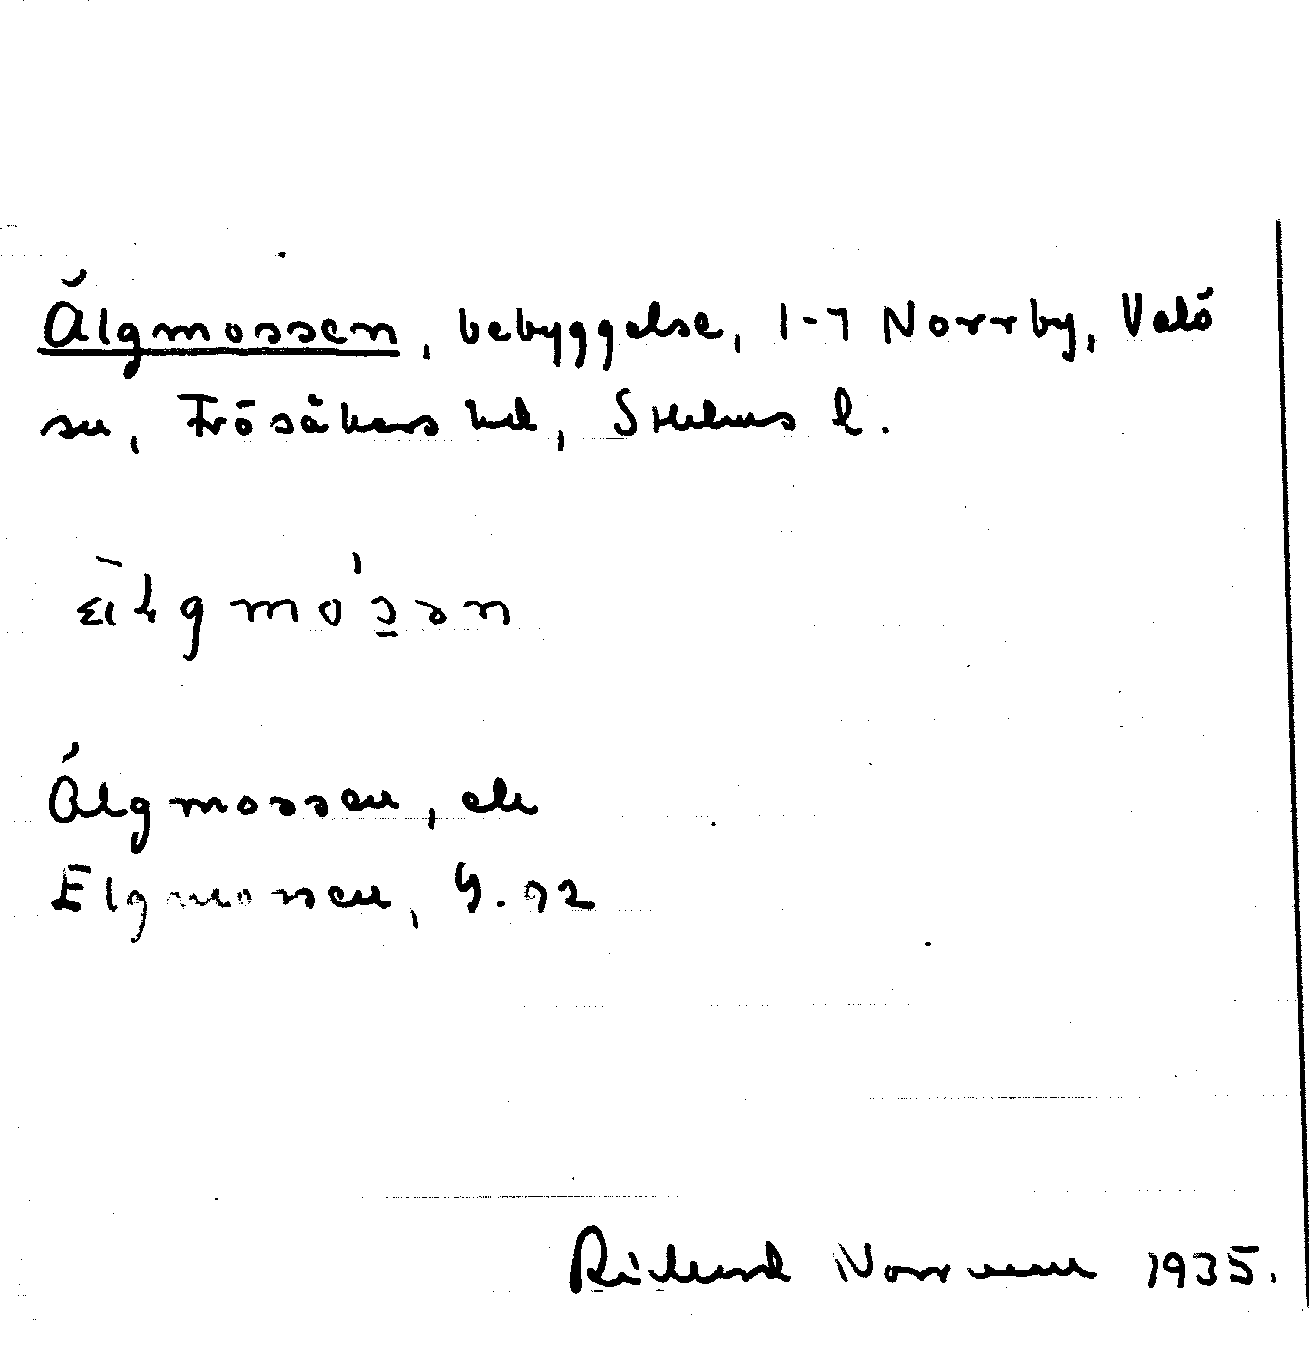 Älgmossen, bebyggelse, 1-7 Norrby, Valö
sn, Frösåkers hd, Sthlms l.
Älgmossen, ek
Elgmossen, G.92
Rickard Norrman 1935.